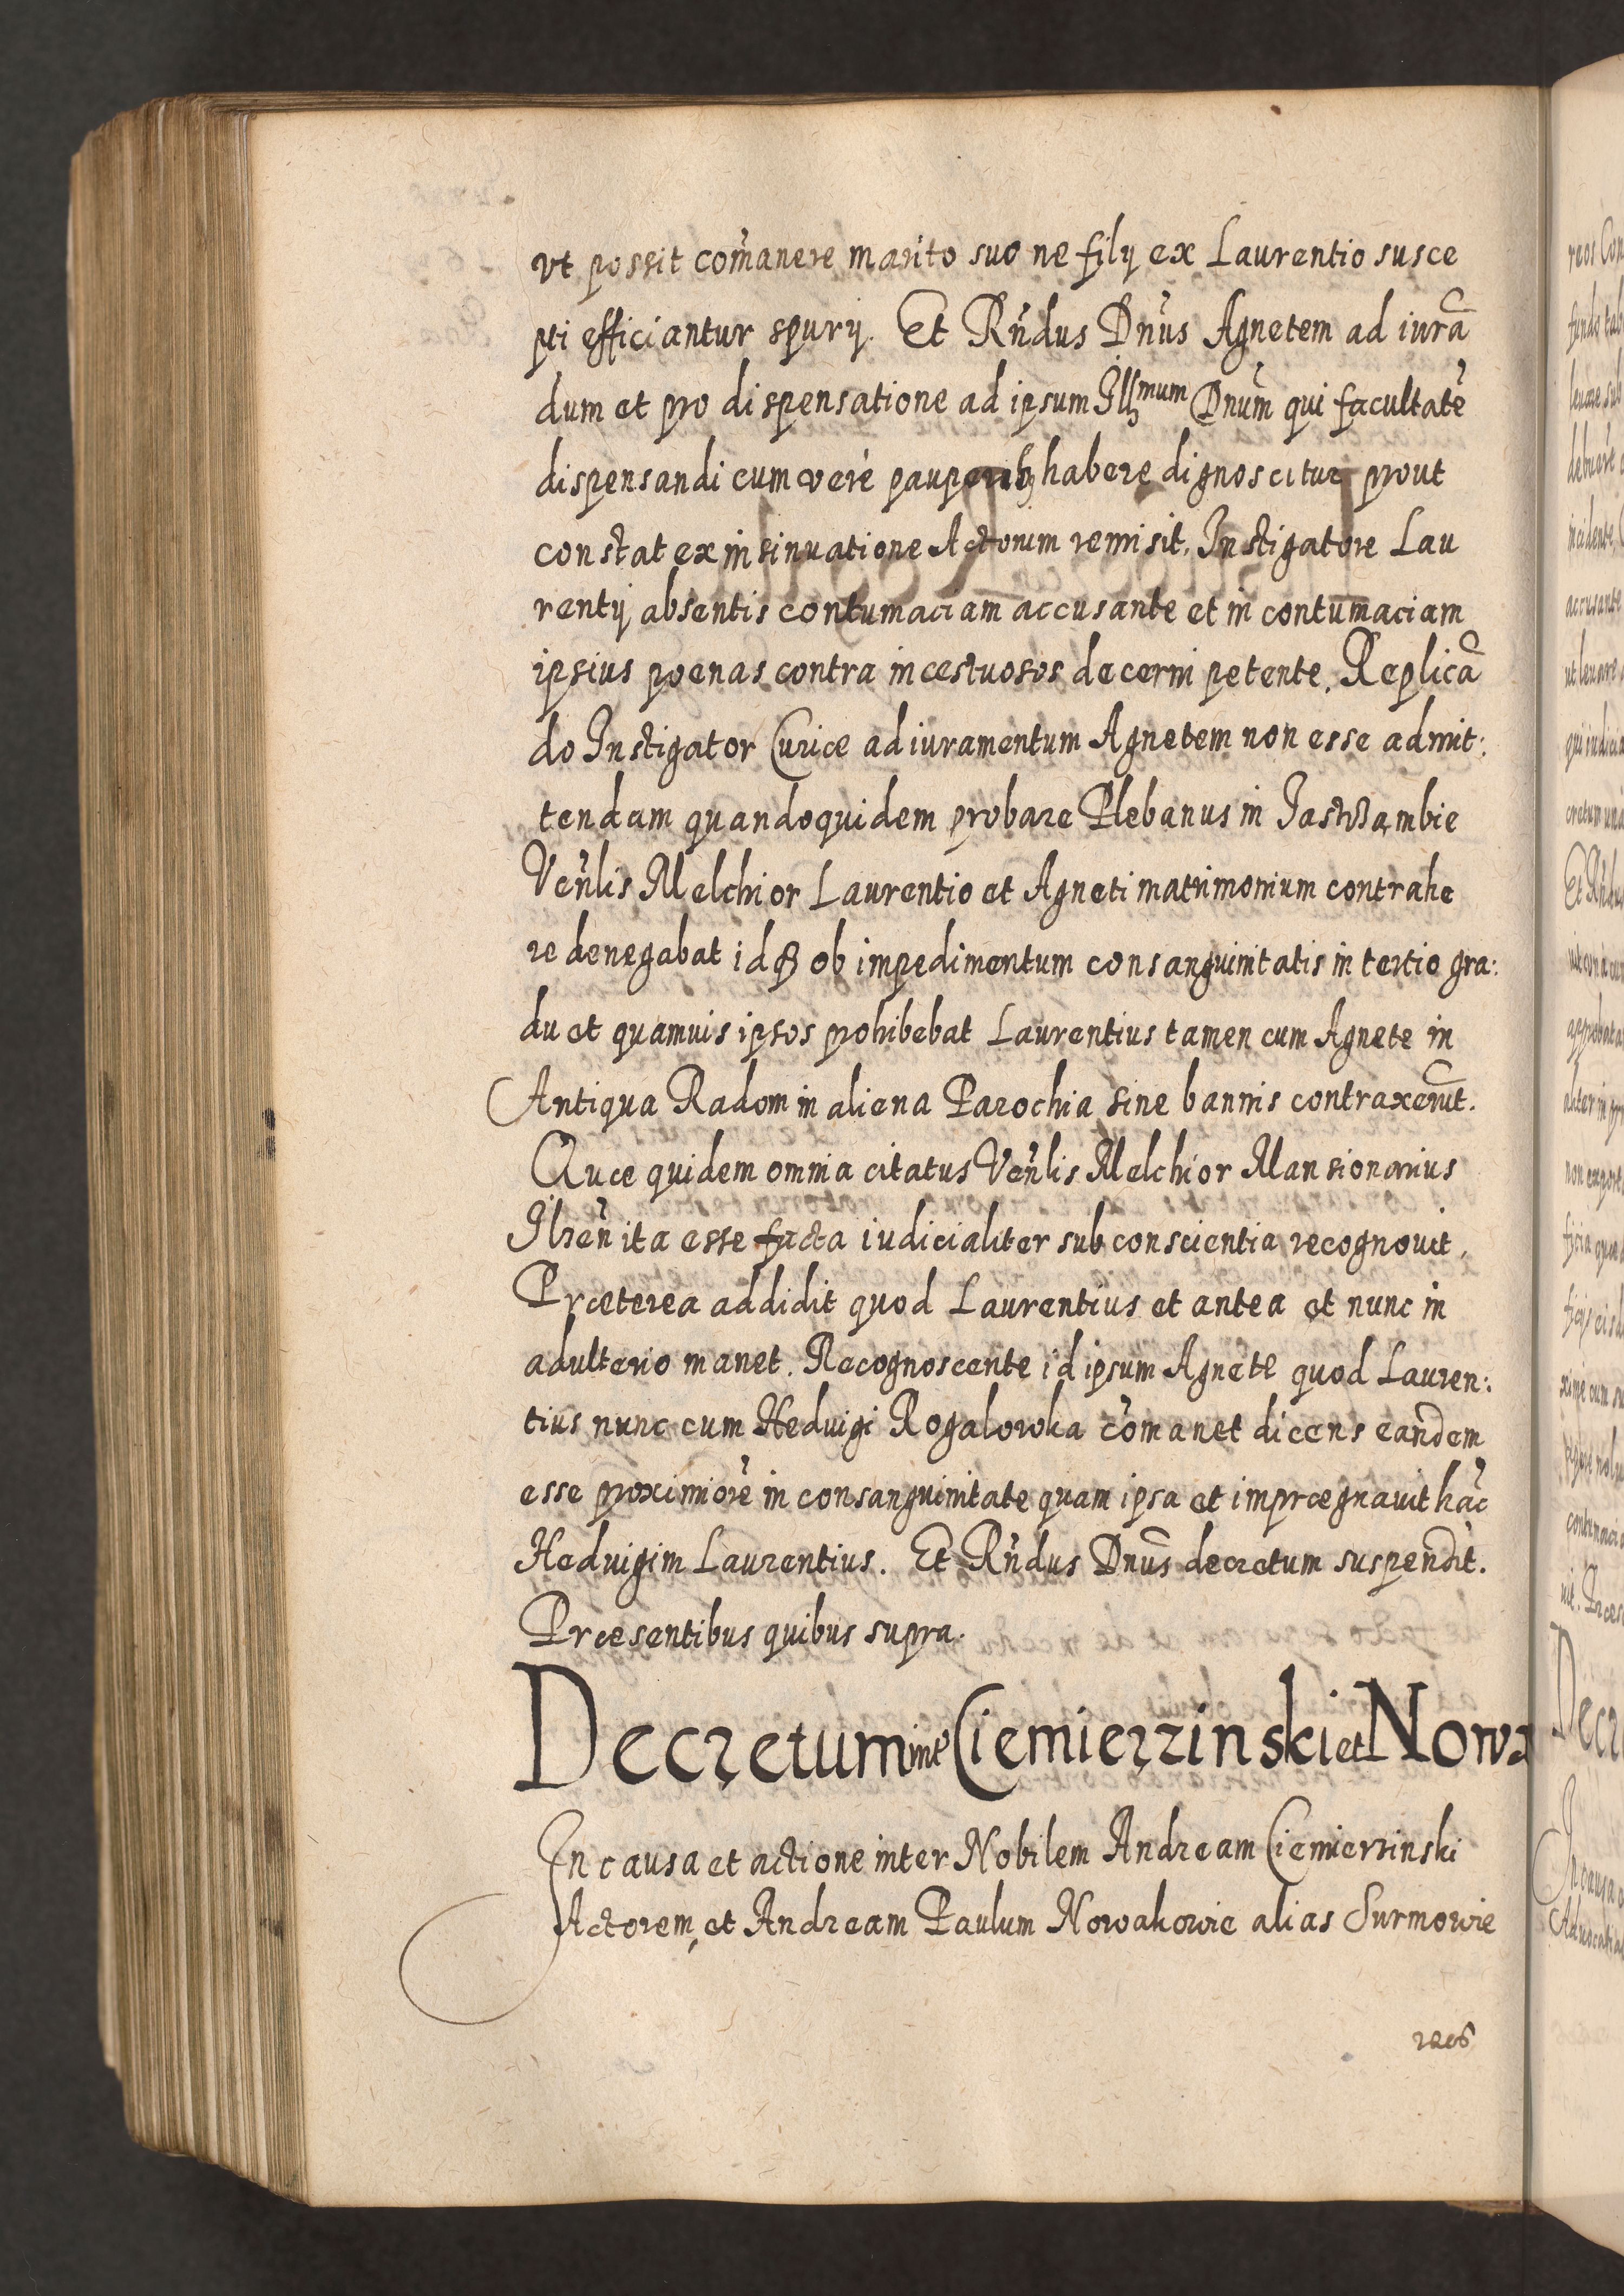 vt possit com̃anere marito suo ne filij ex Laurentio susce
pti efficiantur spurij. Et Rñdus Dñus Agnetem ad iurã
dum et pro dispensatione ad ipsum Illmum Dnũm qui facultatẽ
dispensandi cum verè pauperibꝫ habere dignoscitur prout
constat ex insinuatione Actorum remisit. Instigatore Lau
rentij absentis contumaciam accusante et in contumaciam
ipsius poenas contra incestuosos decerni petente. Replicã
do Instigator Curiæ ad iuramentum Agnetem non esse admit:
tendam quandoquidem probare Plebanus in
Veñlis Melchior Laurentio et Agneti matrimonium contrahe
re denegabat idqꝫ ob impedimentum consanguinitatis in tertio gra:
du et quamuis ipsos prohibebat Laurentius tamen cum Agnete in
Antiqua Radom in aliena Parochia sine bannis contraxerũt.
Quæ quidem omnia citatus Veñlis Melchior Mansionarius
Ilzeñ ita esse facta iudicialiter sub conscientia recognouit.
Præterea addidit quod Laurentius et antea et nunc in
adulterio manet. Recognoscente id ipsum Agnete quod Lauren:
tius nunc cum Heduigi Rogalowka com̃anet dicens eandem
esse proximiorẽ in consanguinitate quam ipsa et imprægnauit hãc
Heduigim Laurentius. Et Rñdus Dnũs decretum suspendit.
Præsentibus quibus supra.
Decretum inter Ciemierzinski et Nowa
In causa et actione inter Nobilem Andream Ciemierzinski
Actorem, et Andream Paulum Nowakowie alias Surmowie
reos